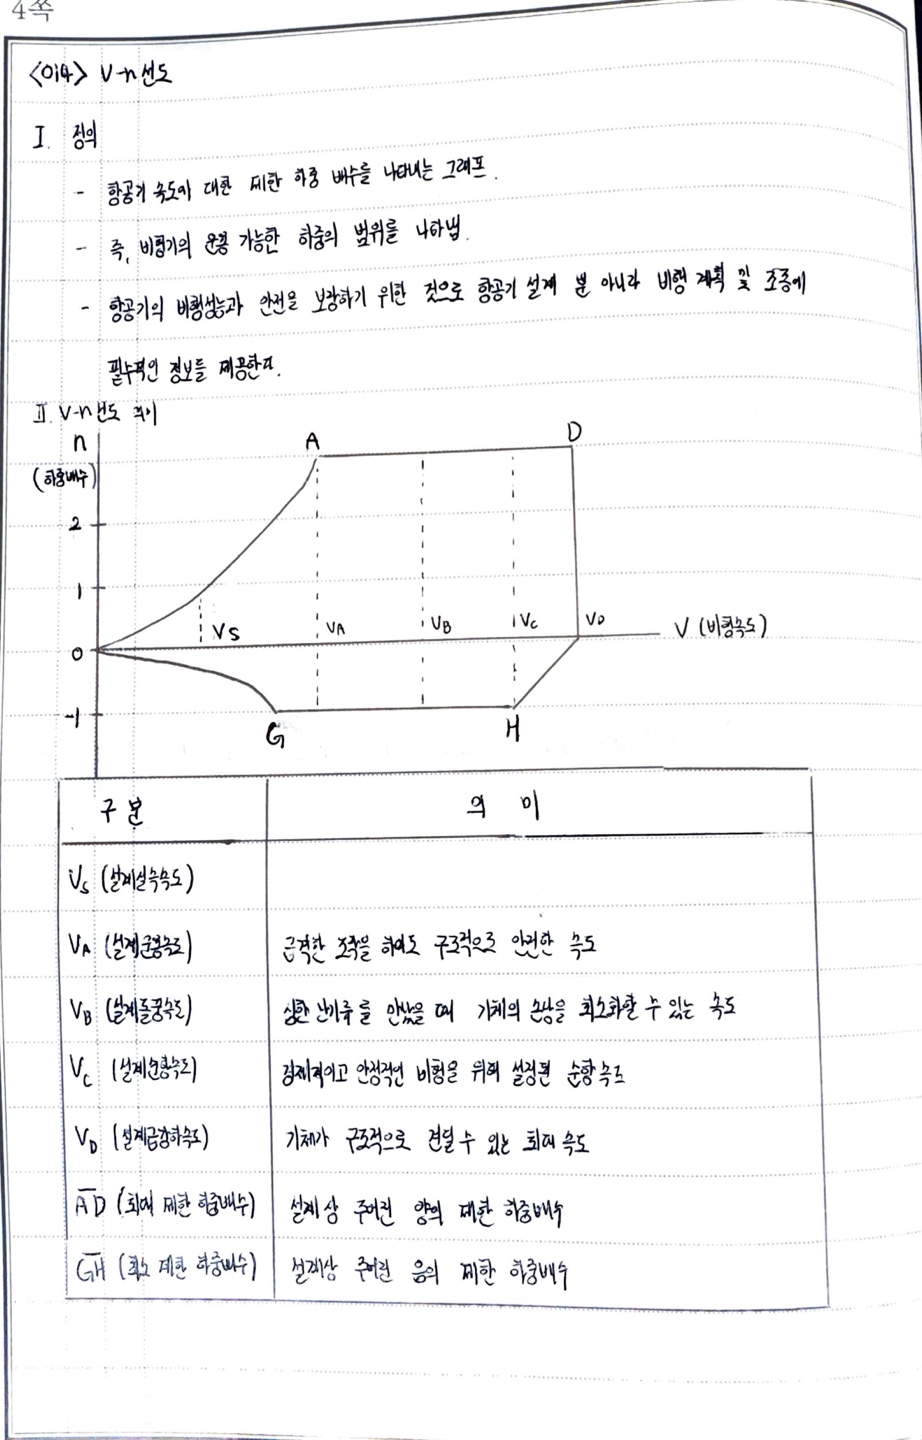 4쪽
<014> V-n선도
I. 정의
- 항공기 속도에 대한 제한 하중 배수를 나타내는 그래프.
- 즉, 비행기의 운용 가능한 하중의 범위를 나타냄.
- 항공기의 비행성능과 안전을 보장하기 위한 것으로 항공기 설계 뿐 아니라 비행 계획 및 조종에
필수적인 정보를 제공한다.
II. V-n선도
n
A
D
(하중배수)
2
1
VS
VA
VB
VC
VD
V (비행속도)
0
-1
G
H
구분
의 미
VS (설계실속속도)
VA (설계기동속도)
급격한 조작을 하여도 구조적으로 안전한 속도
VB (설계돌풍속도)
심한 난기류를 만났을 때 기체의 손상을 최소화할 수 있는 속도
VC (설계순항속도)
경제적이고 안정적인 비행을 위해 설정된 순항속도
VD (설계급강하속도)
기체가 구조적으로 견딜 수 있는 최대 속도
AD (최대 제한 하중배수)
설계상 주어진 양의 제한 하중배수
GH (최소 제한 하중배수)
설계상 주어진 음의 제한 하중배수